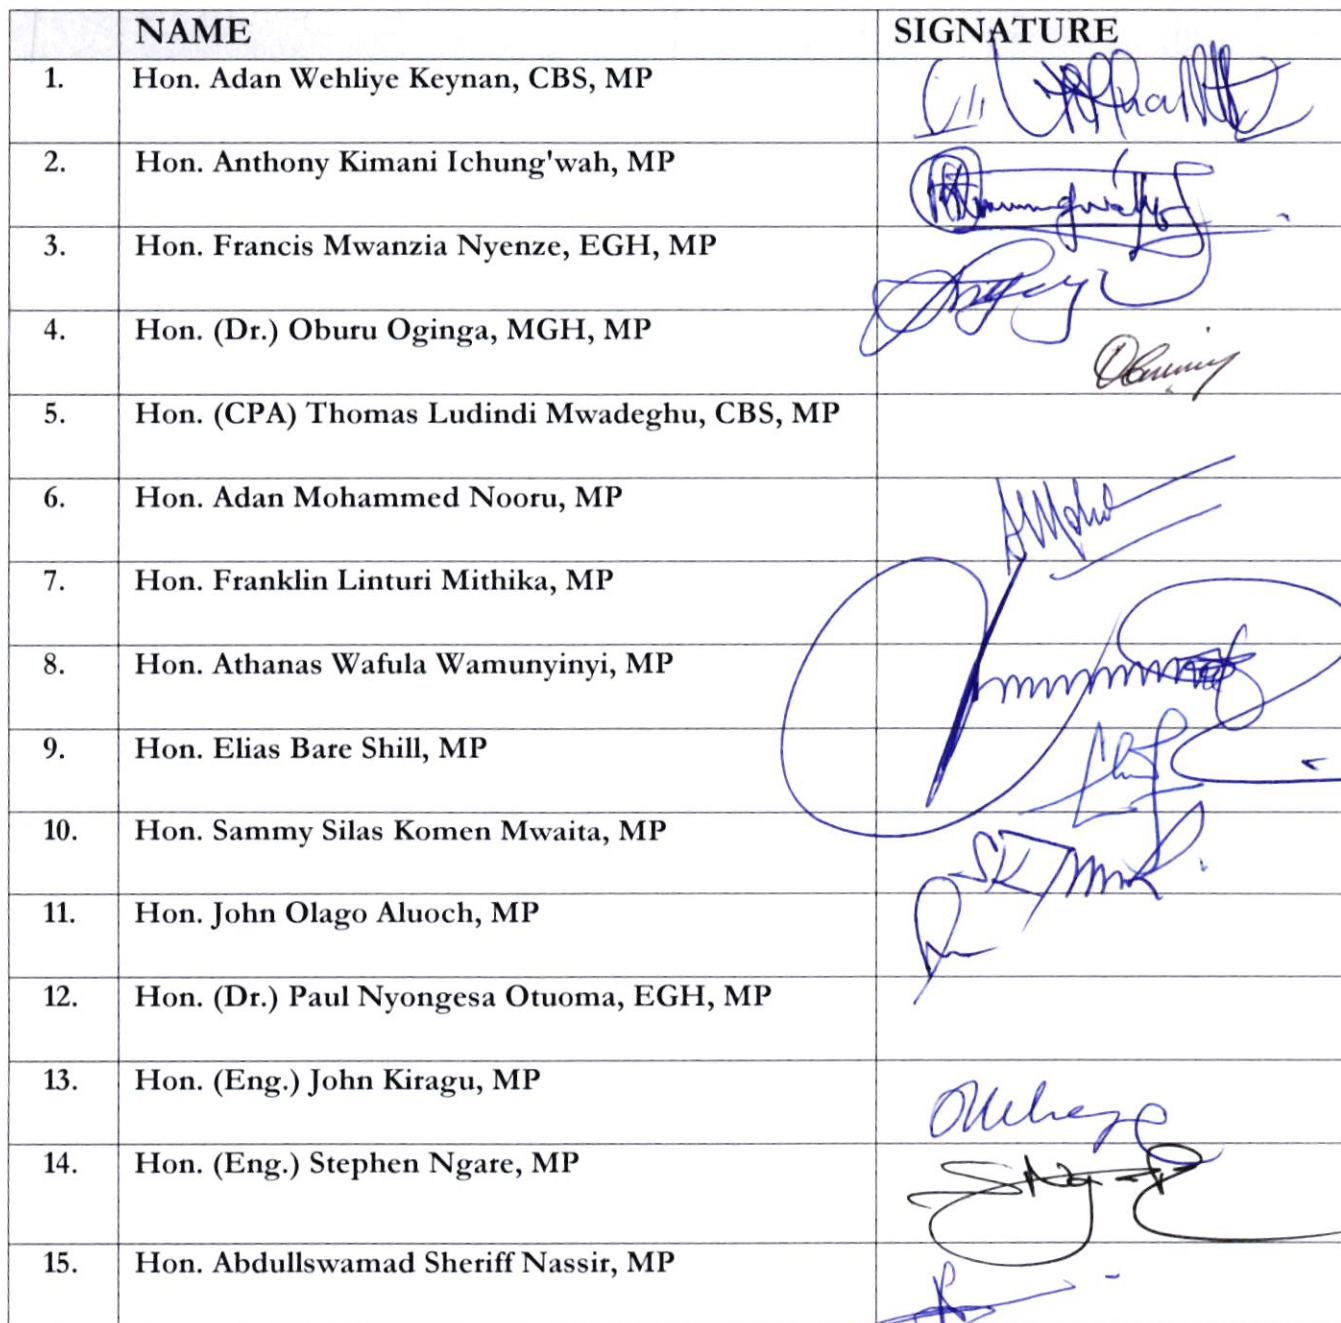 NAME SIGNATURE
1. Hon. Adan Wehliye Keynan, CBS, MP
2. Hon. Anthony Kimani Ichung'wah, MP
3. Hon. Francis Mwanzia Nyenze, EGH, MP
4. Hon. (Dr.) Oburu Oginga, MGH, MP
5. Hon. (CPA) Thomas Ludindi Mwadeghu, CBS, MP
6. Hon. Adan Mohammed Nooru, MP
7. Hon. Franklin Linturi Mithika, MP
8. Hon. Athanas Wafula Wamunyinyi, MP
9. Hon. Elias Bare Shill, MP
10. Hon. Sammy Silas Komen Mwaita, MP
11. Hon. John Olago Aluoch, MP
12. Hon. (Dr.) Paul Nyongesa Otuoma, EGH, MP
13. Hon. (Eng.) John Kiragu, MP
14. Hon. (Eng.) Stephen Ngare, MP
15. Hon. Abdullswamad Sheriff Nassir, MP